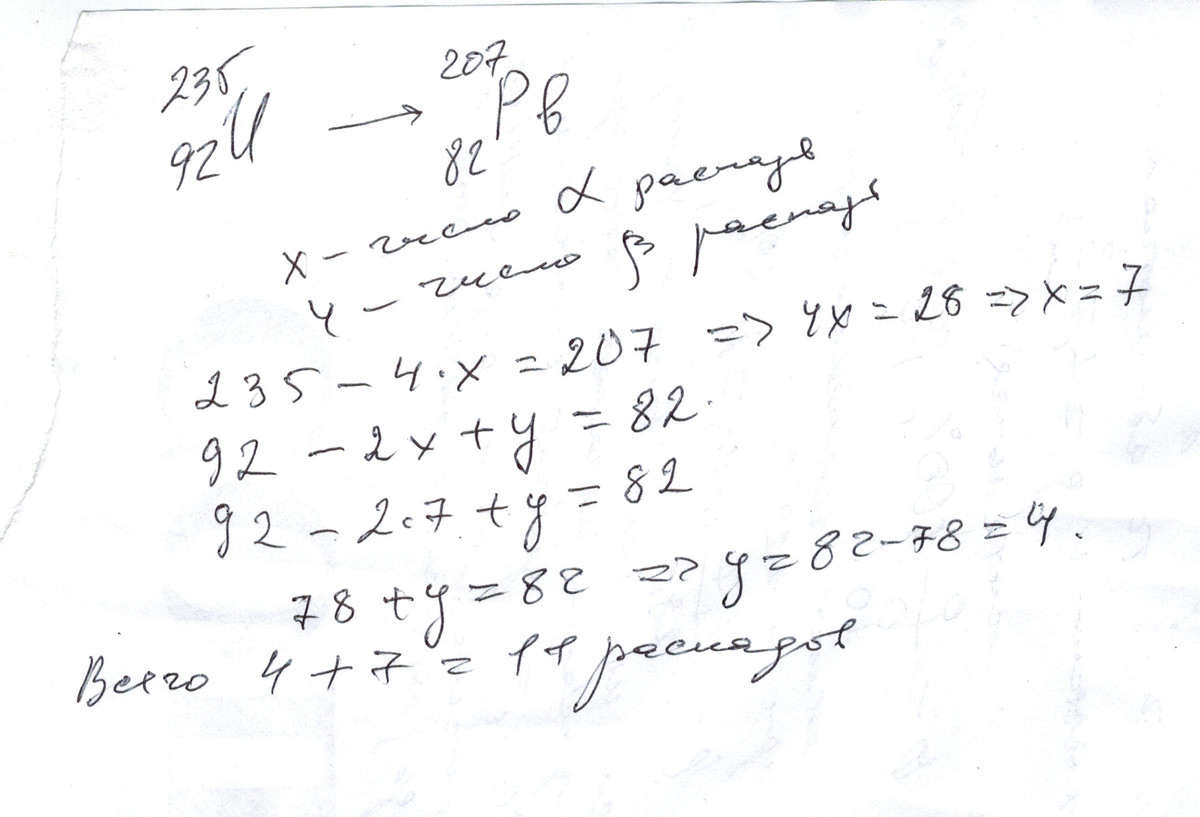 ²³⁵₉₂U → ²⁰⁷₈₂Pв
x – число α распадв
y – число β распадв
235 – 4·x = 207 => 4x = 28 => x = 7
92 – 2x + y = 82.
92 – 2·7 + y = 82
78 + y = 82 => y = 82-78 = 4.
Всего 4 + 7 = 11 распадов